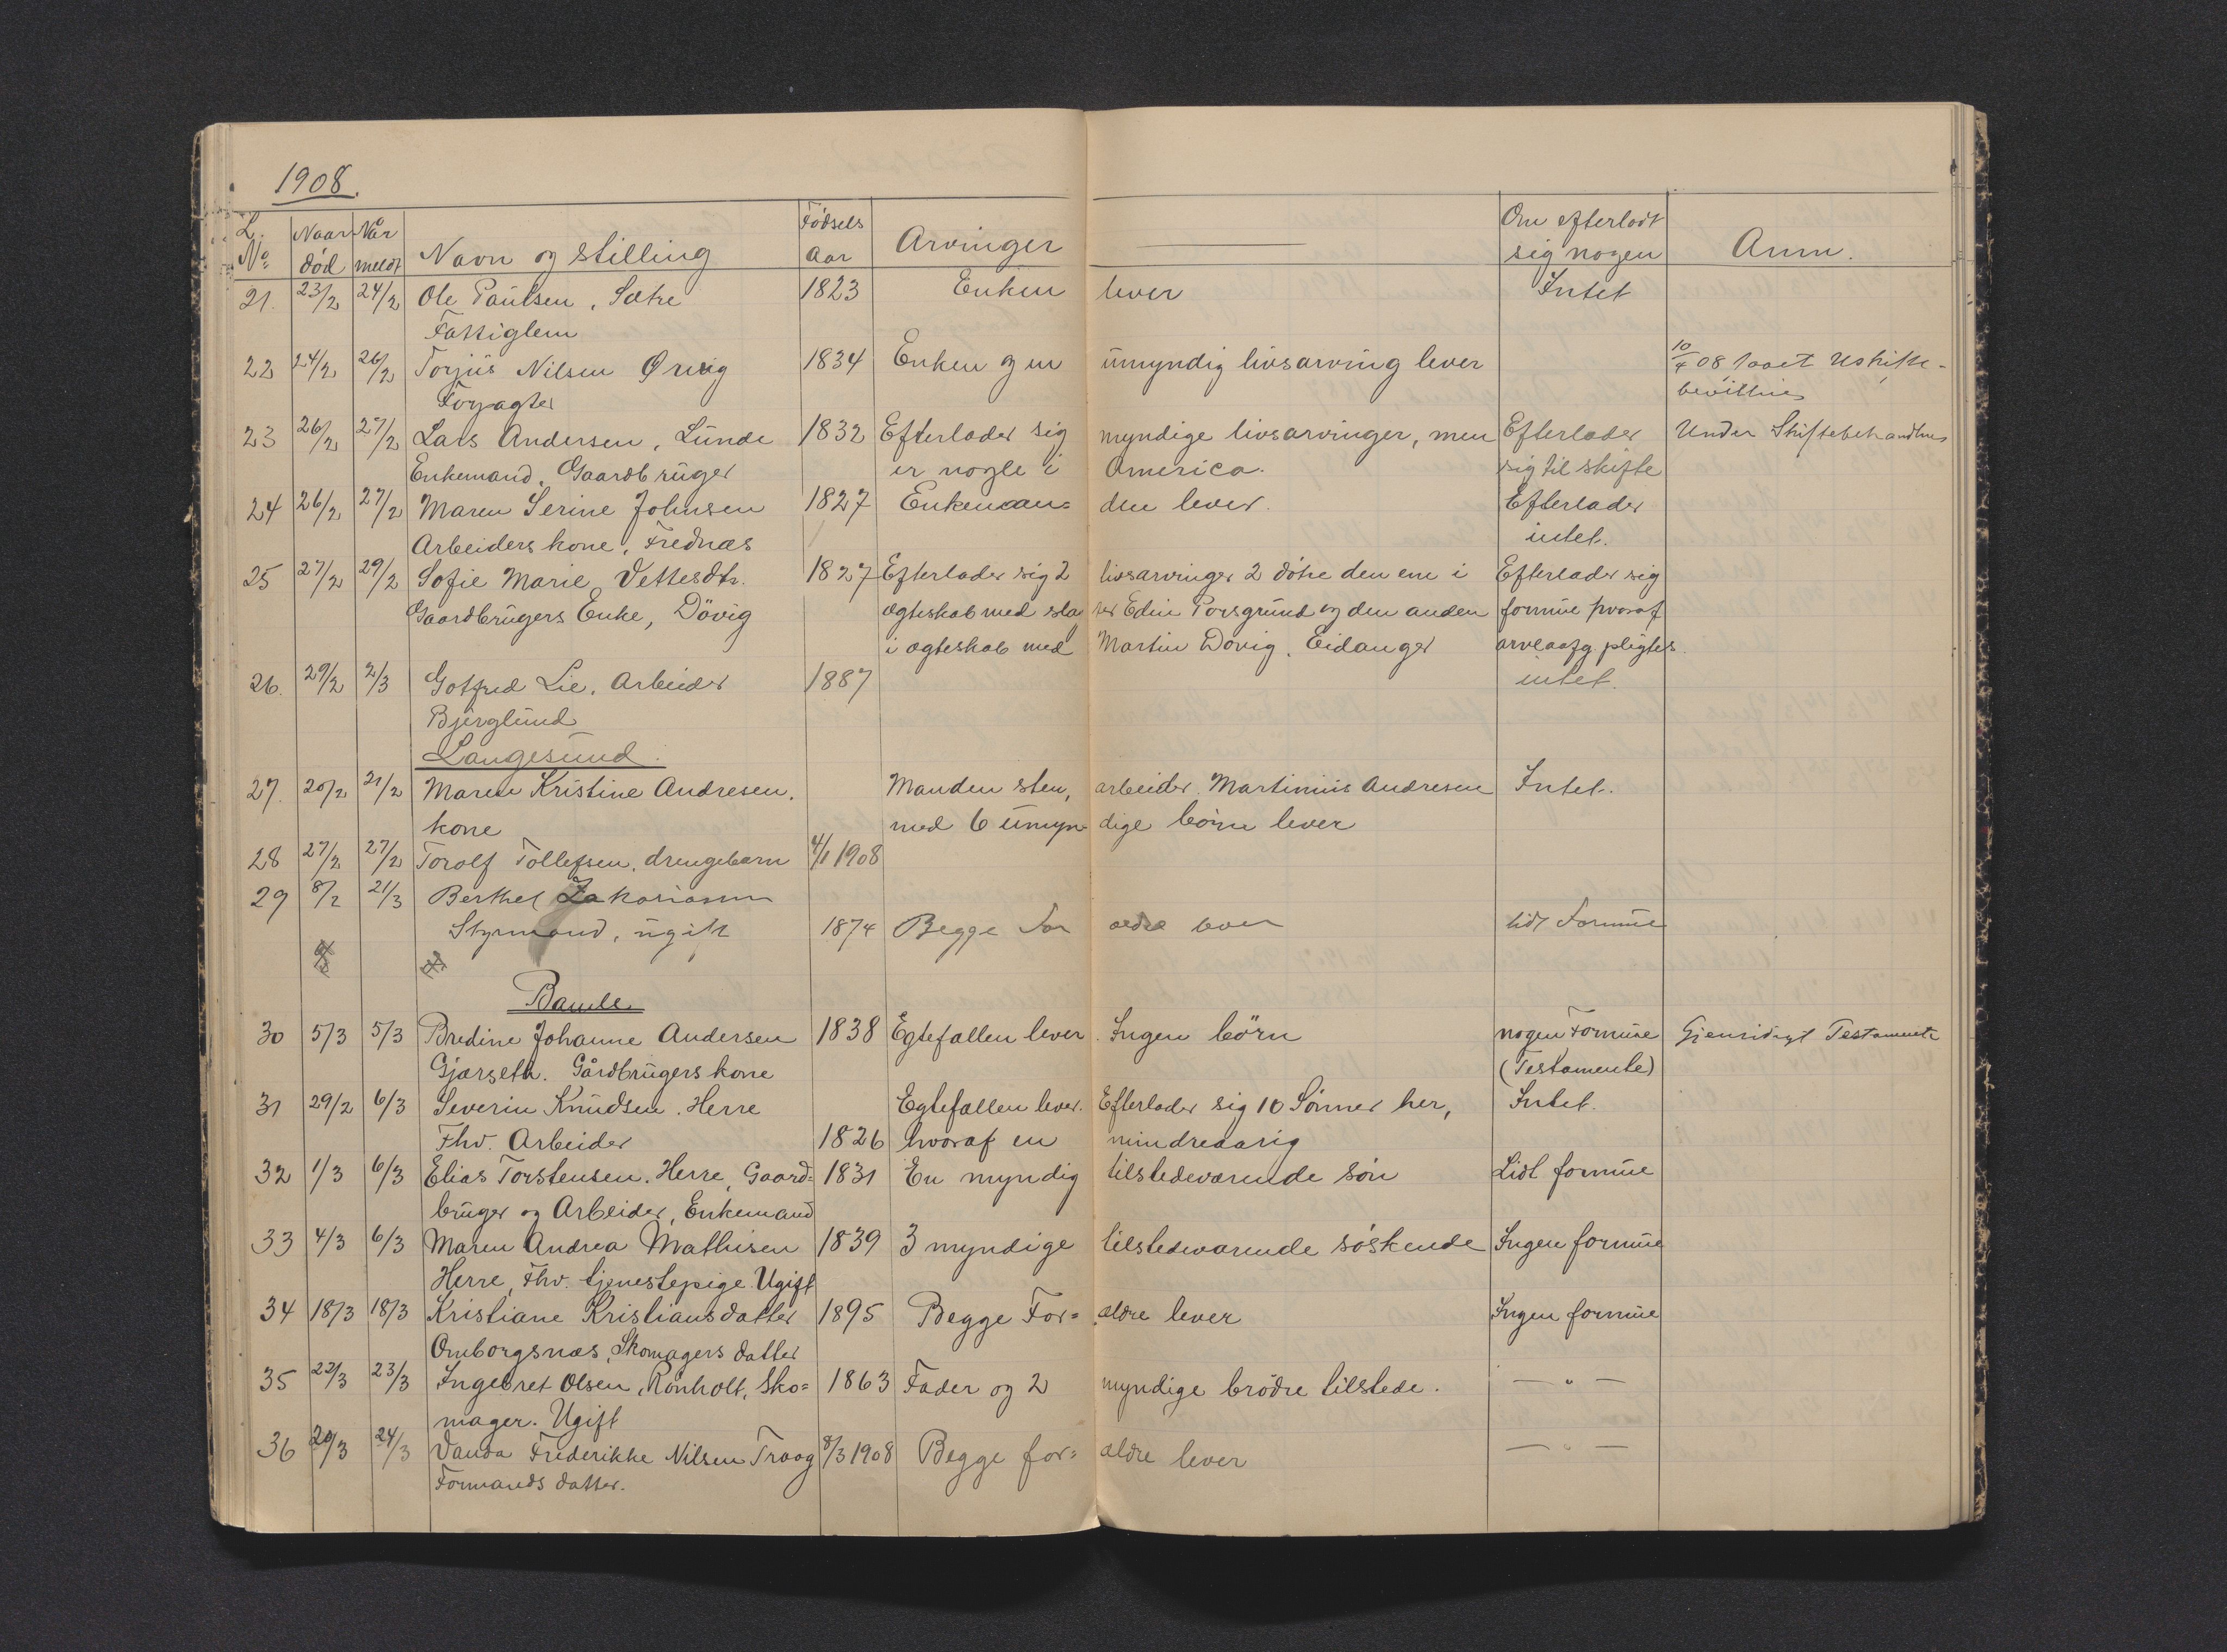 1908.
L. No Naar død Når meldt Navn og stilling Födsels Aar Arvinger Om efterladt sig nogen Anm.
21. 23/2 24/2 Ole Paulsen, Sætre 1823 Enken lever Intet
Fattiglem
22 24/2 26/2 Torjus Nilsen Ørvig 1834 Enken og en umyndig livsarving lever 10/4 08 Uskifte-
Forpagter bevilling
23 26/2 27/2 Lars Andersen, Lunde 1832 Efterlader sig myndige livsarvinger, men Efterlader Under Skiftebehandling
Enkemand, Gaardbruger er nogle i America. sig til skifte
24 26/2 27/2 Maren Serine Johnsen 1827 Enkeman= den lever. Efterlader
Arbeiders kone, Frednæs intet.
25 27/2 29/2 Sofie Marie Vettesdtr. 1827 Efterlader sig 2 livsarvinger 2 døtre den ene i Efterlader sig
Gaardbrugers Enke, Dövig ægteskab med Porsgrund og den anden formue hvoraf
i ægteskab med Martin Dövig. Eidanger arveafg. pligtes.
26. 29/2 2/3 Gotfred Lie. Arbeider 1887 intet.
Bjerglund
Langesund.
27. 20/2 21/2 Maren Kristine Andresen. Manden sten, arbeider Martinius Andresen Intet.
kone med 6 umyn- dige börn lever
28 27/2 27/2 Torolf Tollefsen, drengebarn 4/1 1908
29 8/2 21/3 Berthel Zakariasen
Styrmand, ugift 1874 Begge For ældre lever lidt Formue
Bamle
30 5/3 5/3 Bredine Johanne Andersen 1838 Egtefællen lever. Ingen börn nogen Formue Gjensidigt Testamente
Gjærseth. Gårdbrugers kone (Testamente)
31 29/2 6/3 Severin Knudsen. Herre Egtefællen lever. Efterlader sig 10 Sönner her, Intet.
Fhv. Arbeider 1826 hvoraf en mindreaarig
32 1/3 6/3 Elias Torstensen. Herre, Gaard= 1831 En myndig tilstedeværende sön Lidt formue
bruger og Arbeider, Enkemand
33 4/3 6/3 Maren Andrea Mathisen 1839 3 myndige tilstedeværende söskende Ingen formue
Herre, Fhv. tjenestepige Ugift
34 18/3 18/3 Kristiane Kristiansdatter 1895 Begge For= ældre lever Ingen formue
Omborgsnæs, Skomagers datter
35 22/3 23/3 Ingebret Olsen, Rönholt, Sko= 1863 Fader og 2 myndige brödre tilstede. — " —
mager. Ugift
36 20/3 24/3 Vanda Frederikke Nilsen Traag 8/3 1908 Begge for= ældre lever — " —
Formands datter.